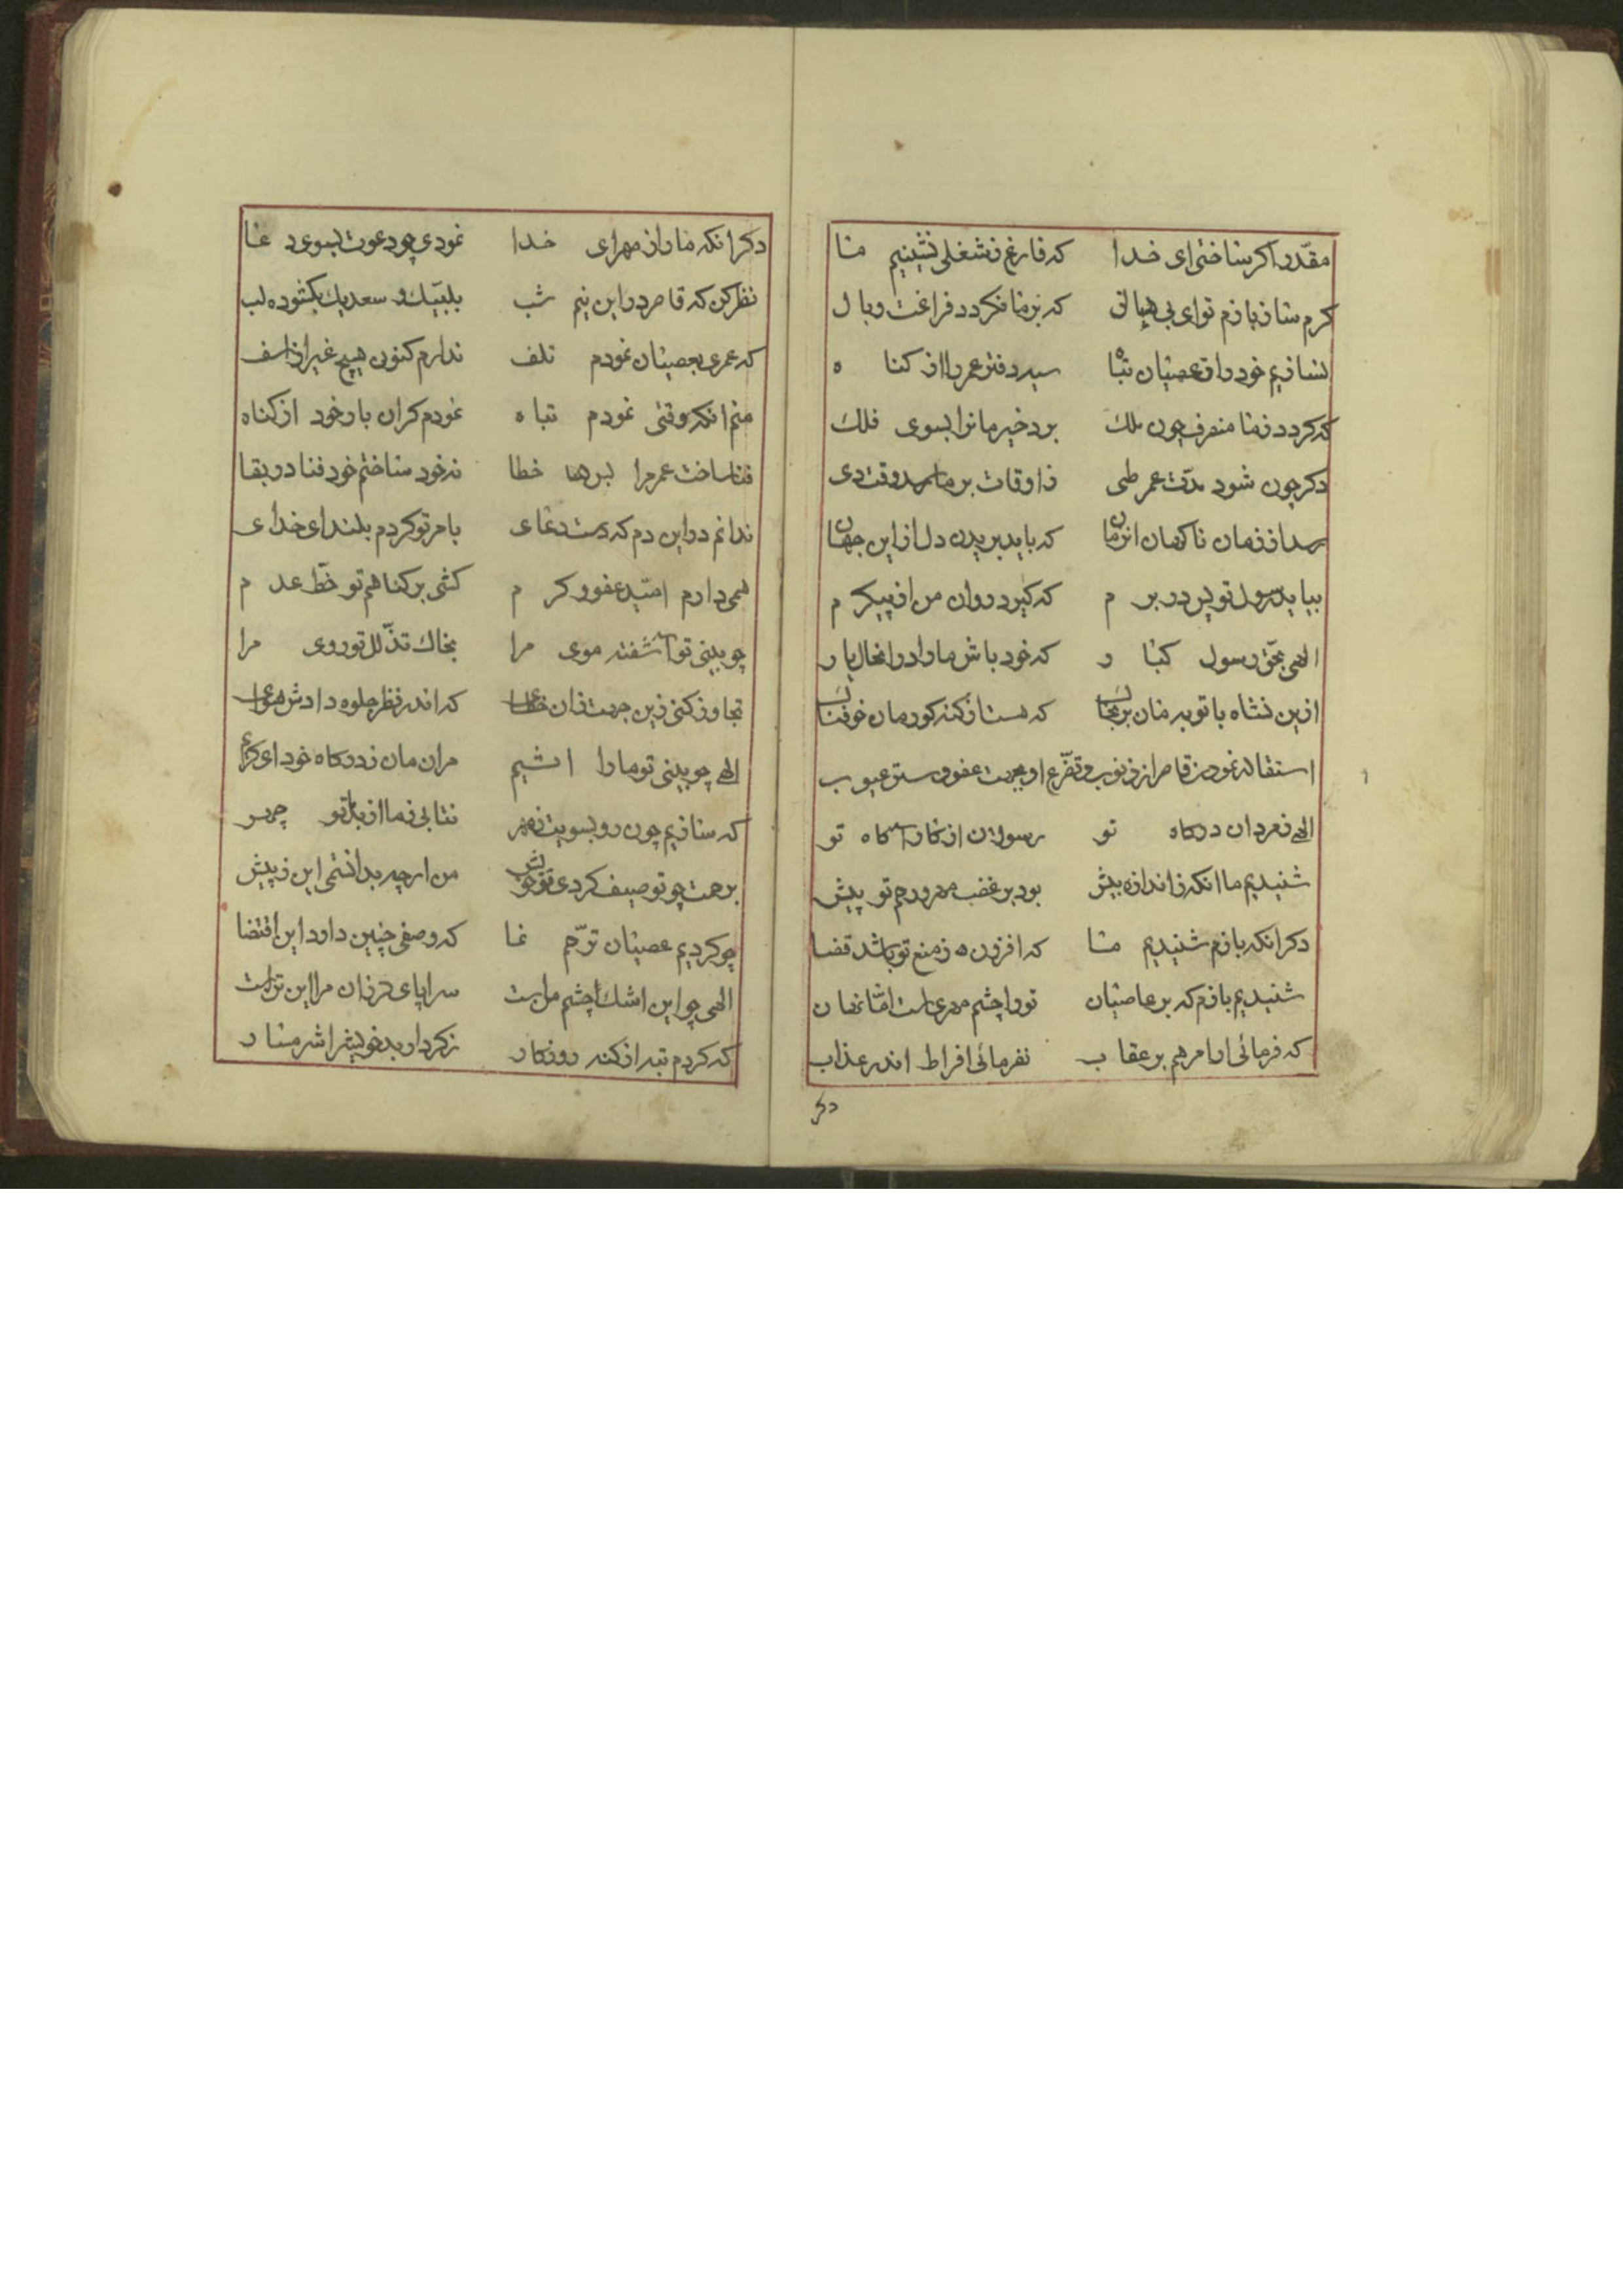 مقدر اکر ساختی ای خدا که فارغ ز شغلی نشینیم ما
کرم ساز بازم توای بی همال که بر ما نکردد فراغت وبال
نسازیم خود را ز عصیان تباه سیه دفتر عمر را از کناه
که کردد ز ما منصرف چون ملک برد خیر مانرا بسوی فلک
دکر چون شود مدّت عمر طی ز اوقات بر ما رسد وقت دی
رسد از زمان ناکهان انزمان که باید بریدن دل از این جهان
بیاید رسول تو پس در برم که کیرد روان من از پیکرم
الهی بحق رسول کبار که خود باش ما را در انحال یار
ازین نشاه با توبه مان بر
که هست از کنه
استقاله نمودن قاصر از ذنوب و تضرع او بجهت عفو و ستر عیوب
الهی ز مردان درکاه تو رسولان از کار آکاه تو
شنیدیم ما انکه ز اندازه بیش بود بر غضب مهر و رحم تو پیش
دکر انکه بازم شنیدیم ما که افزون ز منع تو باشد قضا
شنیدیم بازم که بر عاصیان تو را چشم مهری است اما نهان
که فرمائی ار امر هم بر عقاب نفرمائی افراط اندر عذاب
دکر
دکر انکه ما را ز مهر ای خدا نمودی چو دعوت بسوی دعا
نظر کن که قاصر در این نیم شب بلبیک و سعدیک بکشوده لب
که عمری بعصیان نمودم تلف ندارم کنون هیچ غیر از اسف
منم انکه وقتی نمودم تباه نمودم کران بار خود از کناه
فنا ساخت عمر مرا بس خطا نه خود ساختم خود فنا در بقا
ندانم در این دم که دست دعای بامر تو کردم بلند ای خدای
همی دارم امّید عفو و کرم کشی بر کناهم تو خطّ عدم
چو بینی تو آشفته موی مرا بخاک تذلّل تو روی مرا
تجاوز کنی زین جهت زان خطا که اندر نظر جلوه دادش هوا
الهی چو بینی تو ما را اثیم مران مان ز درکاه خود ای کریم
که سازیم چون رو بسویت ز مهر نتابی ز ما از
برحمت چو توصیف کردی تو خویش من ار چه بدانستمی این ز پیش
چو کردیم عصیان ترّحم نما که وصفی چنین دارد این اقتضا
الهی چو این اشک چشم من است سراپای لرزان مرا این تن است
که کردم تبه از کنه روزکار ز کردار بد خویش را شرمسار